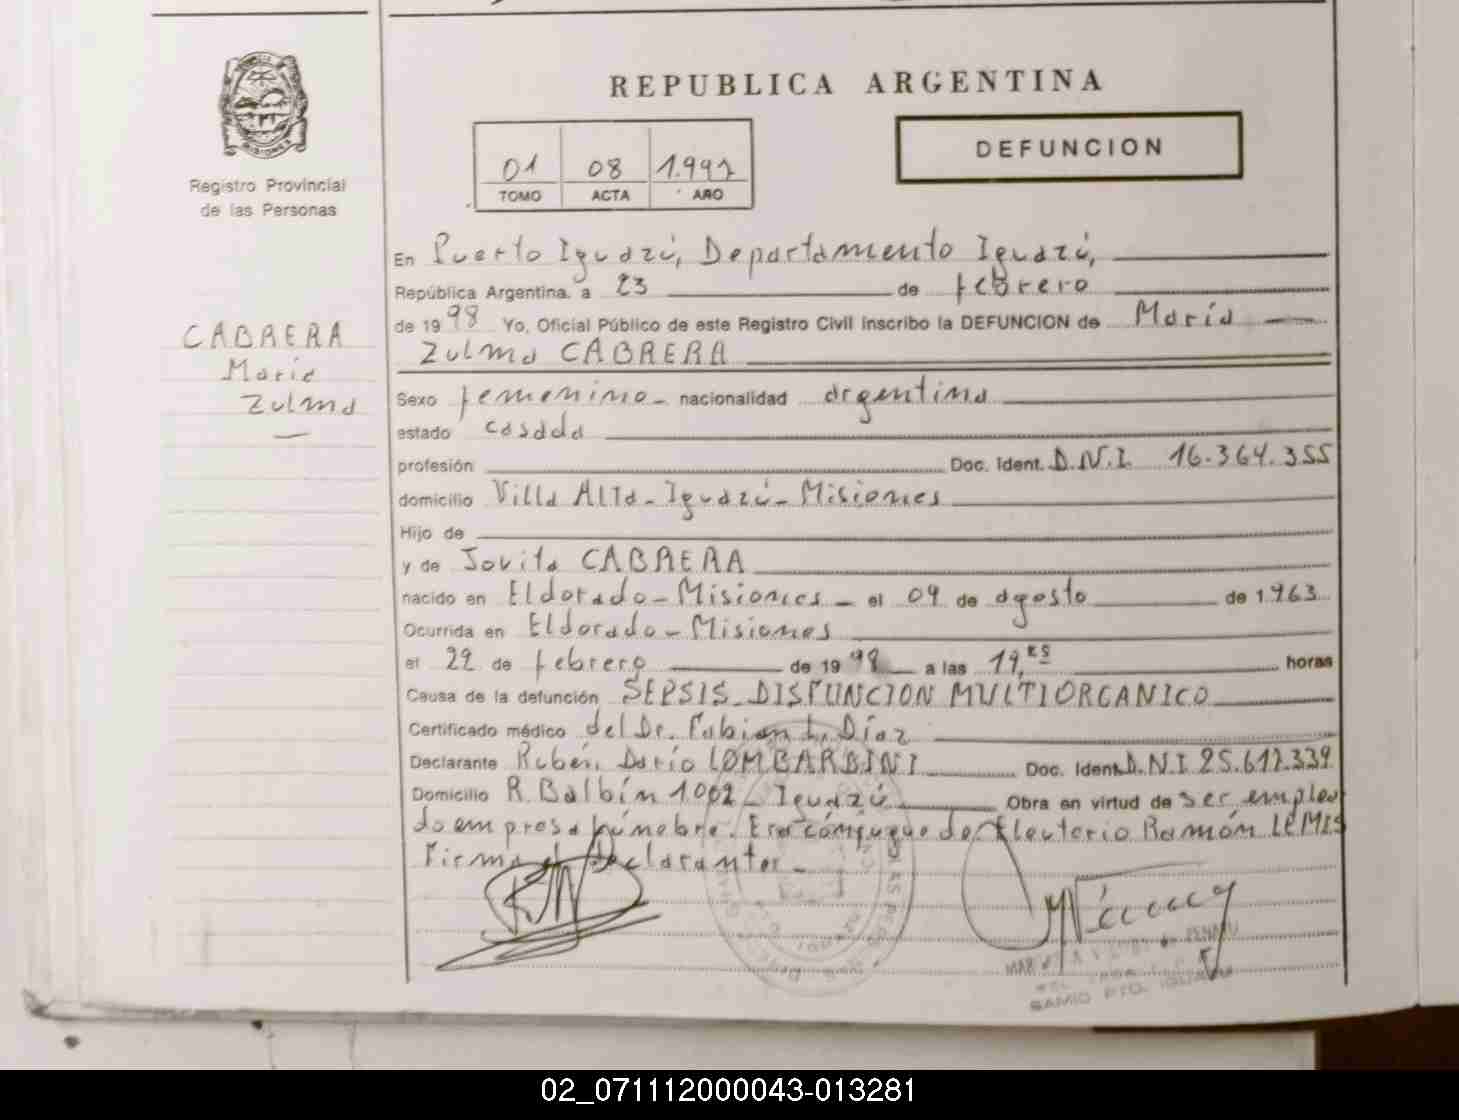 REPUBLICA ARGENTINA
DEFUNCION
01 08 1.997
TOMO ACTA AÑO
MISIONES
Registro Provincial
de las Personas
CABRERA
Maria
Zulma
En Puerto Iguazú, Departamento Iguazú,
República Argentina, a 23 de febrero
de 1998 Yo, Oficial Público de este Registro Civil inscribo la DEFUNCION de María
Zulma CABRERA
Sexo femenino nacionalidad argentina
estado casada
profesión Doc. Ident. D.N.I. 16.364.355
domicilio Villa Alta - Iguazú - Misiones
Hijo de
y de Jovita CABRERA
nacido en Eldorado - Misiones - el 09 de agosto de 1963
Ocurrida en Eldorado - Misiones
el 22 de febrero de 1998 a las 19,ES horas
Causa de la defunción SEPSIS - DISFUNCION MULTIORGANICO
Certificado médico del Dr. Fabian L. Díaz
Declarante Rubén Darío LOMBARDINI Doc. Ident. D.N.I. 25.612.339
Domicilio R. Balbín 1002 - Iguazú Obra en virtud de ser emplea
do empresa fúnebre. Era cónyugue de Eleuterio Ramón LEMES
Firma el Declarante. -
02_071112000043-013281